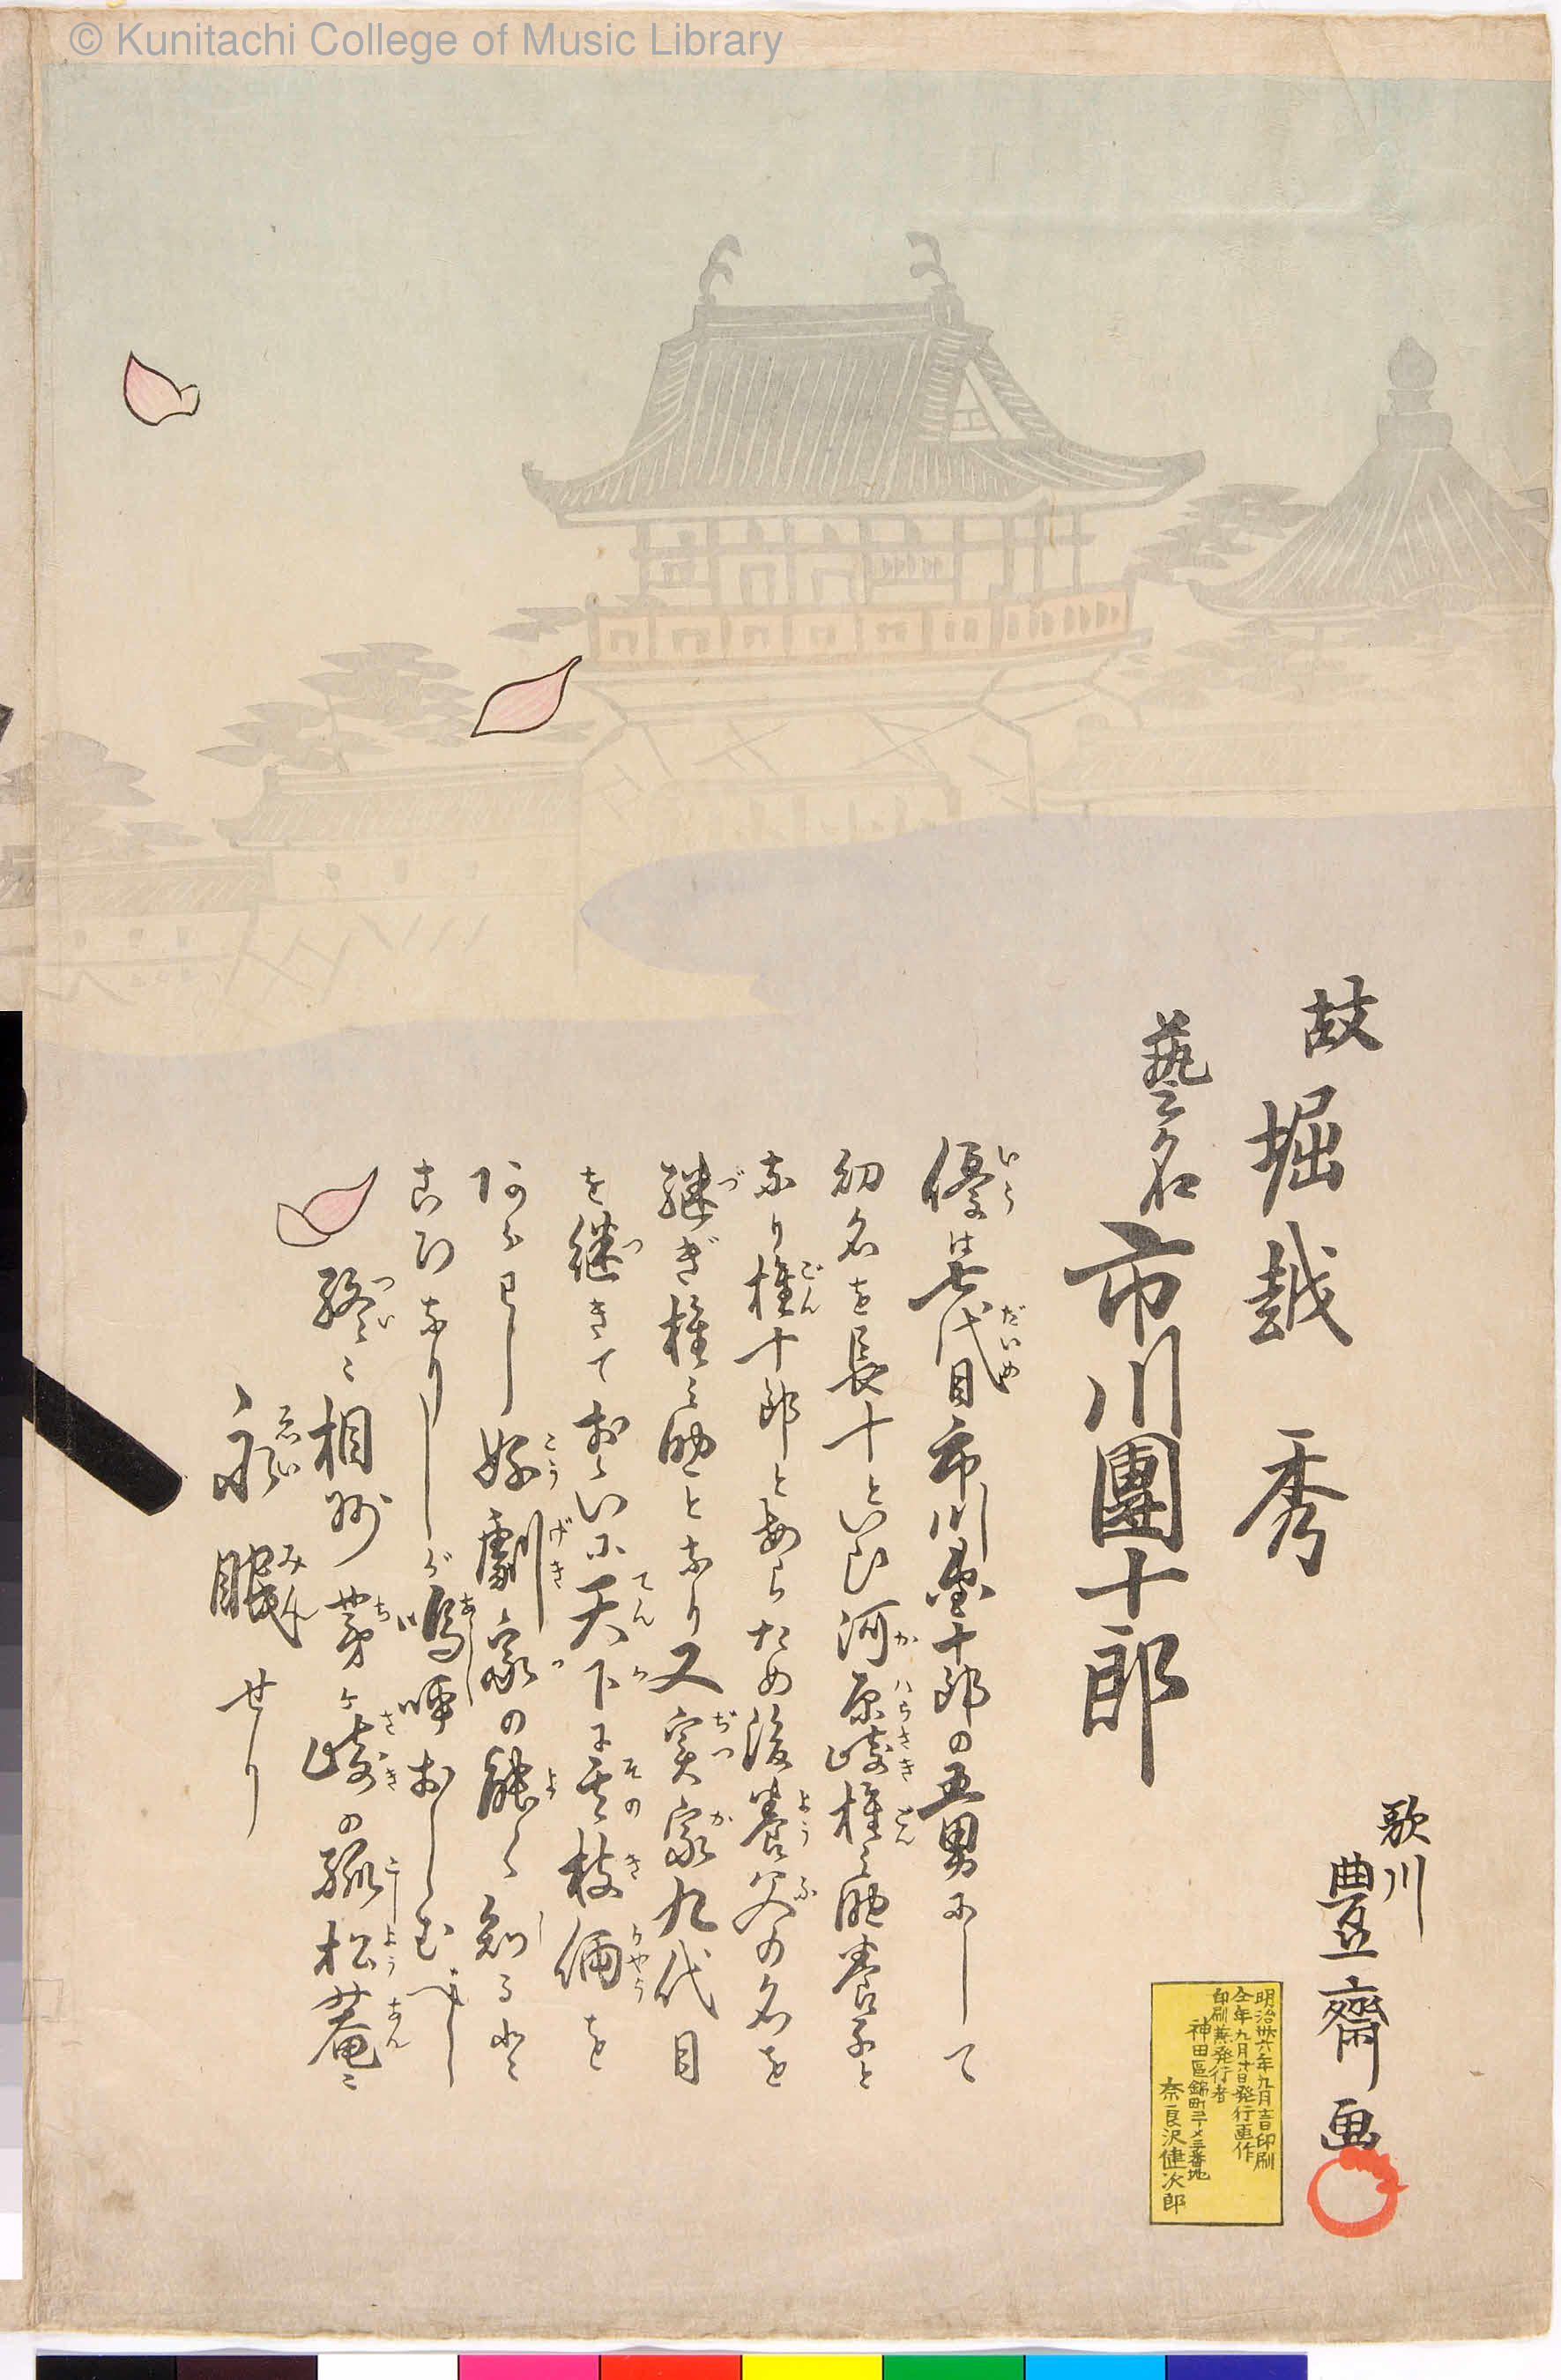 © Kunitachi College of Music Library
故 堀越 秀
藝名 市川團十郎
優は七代目市川團十郎の五男にして
幼名を長十といひ河原崎権之助養子と
なり権十郎とあらため後養父の名を
継ぎ権之助となり又実家九代目
を継きておゝいに天下に其枝倆を
好劇家の能く知る
なりしが嗚呼おしむべし
終ニ相州茅ヶ崎の孤松菴ニ
永眠せり
歌川
豊齋画
明治卅六年九月 日印刷
仝年九月 日発行画作
印刷兼発行者
神田區錦町
奈良沢健次郎